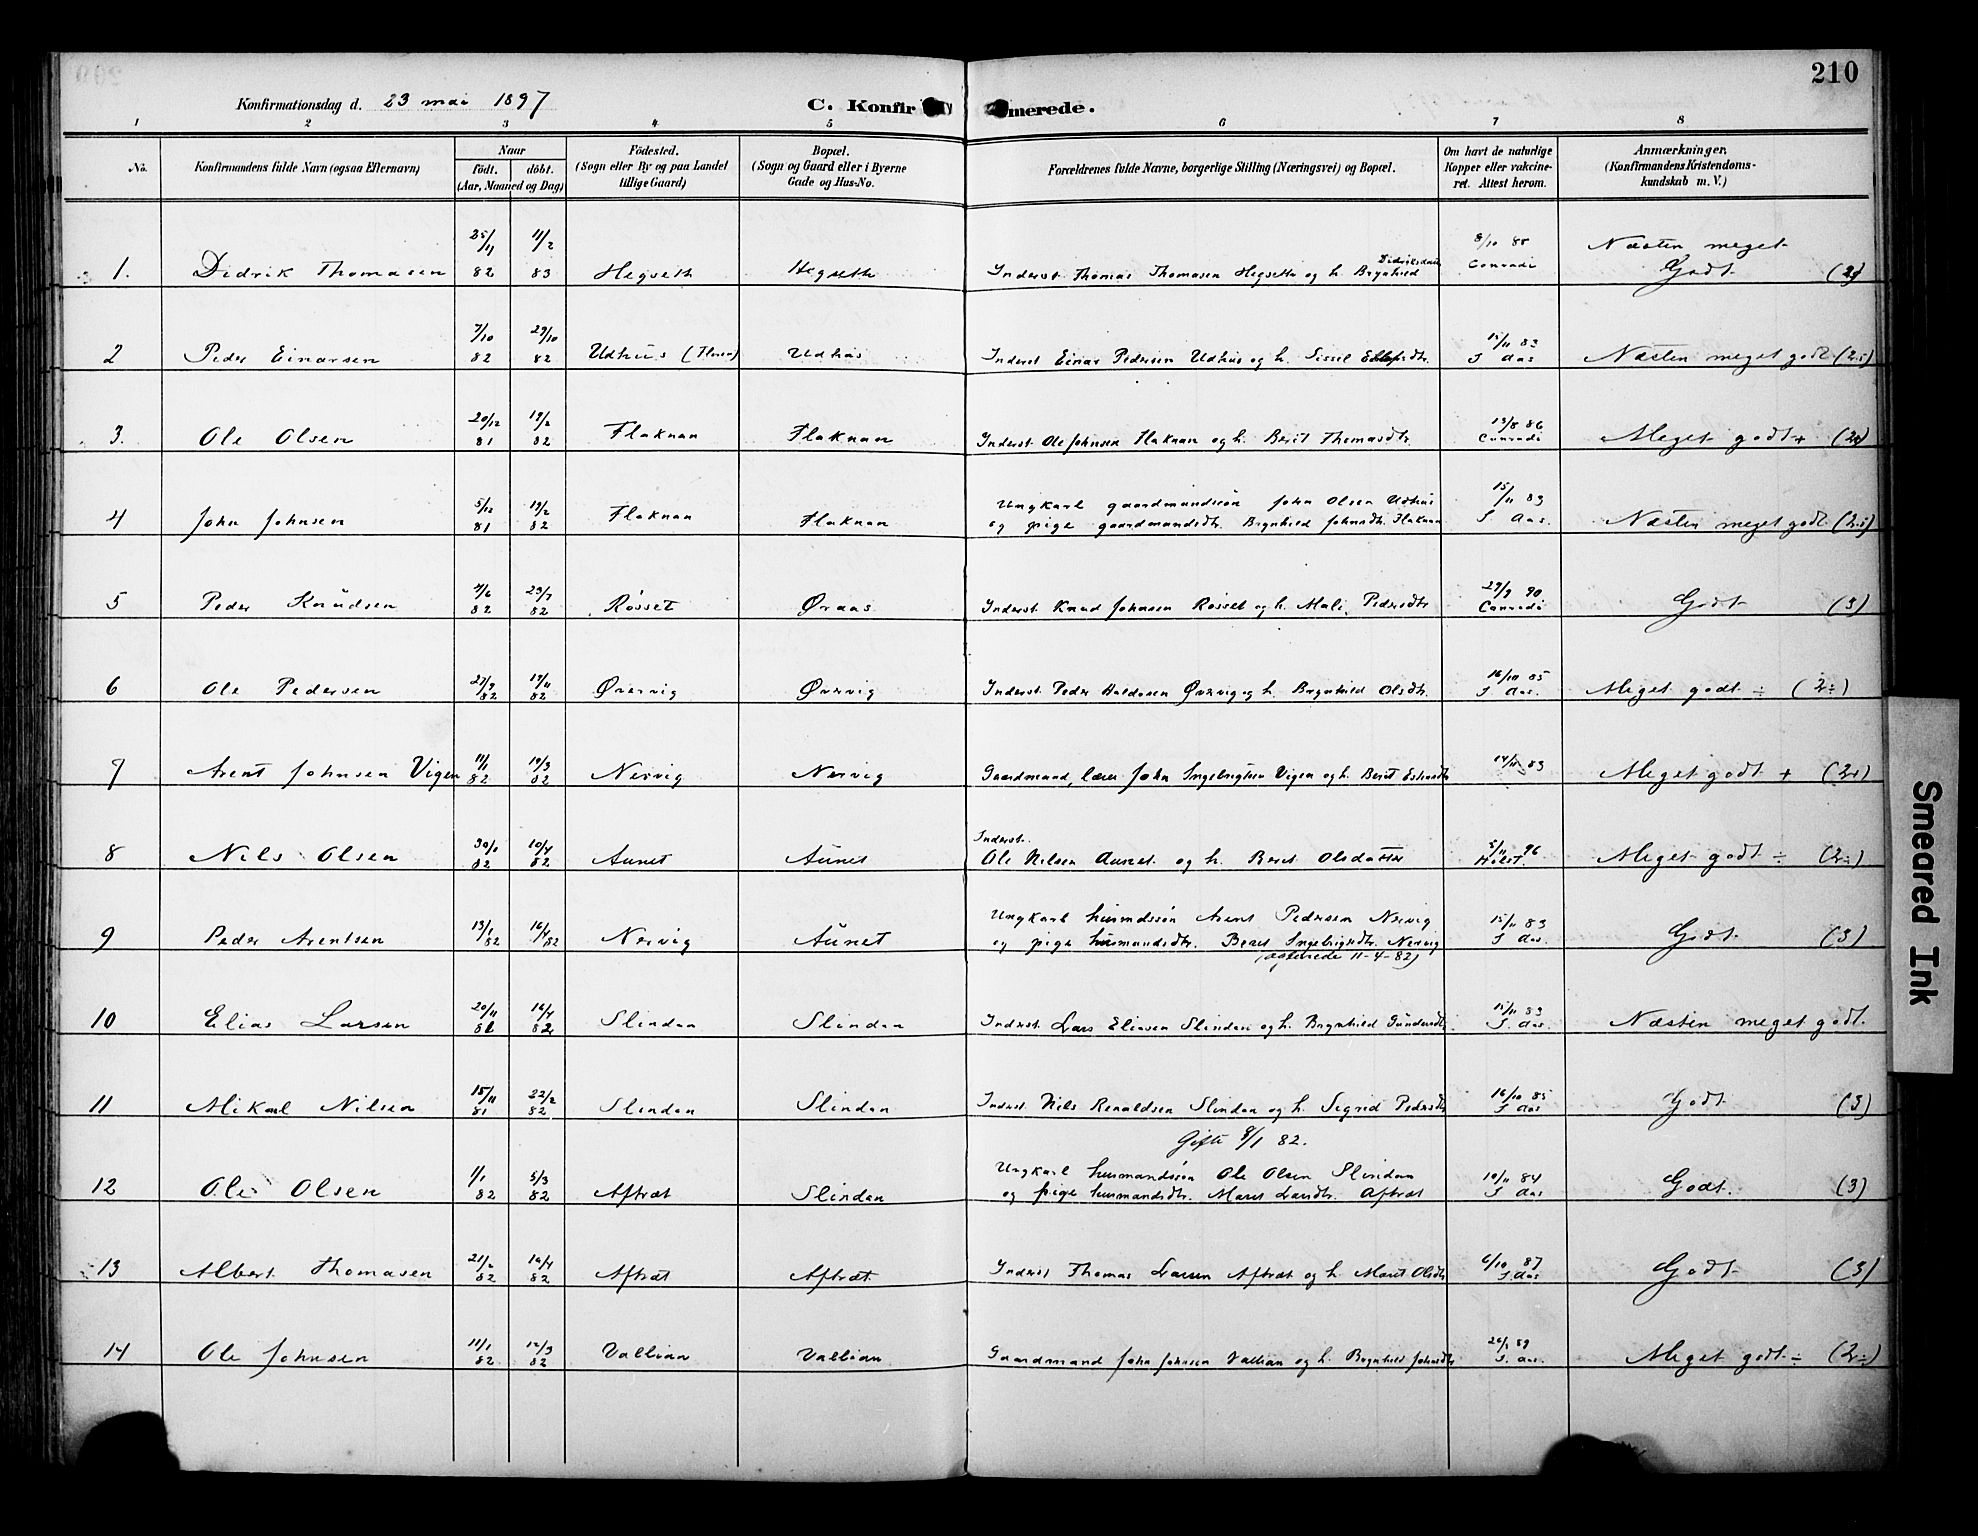 210
Konfirmationsdag d. 23 mai 1897
C. Konfirmerede.
1 2 3 4 5 6 7 8
No. Konfirmandens fulde Navn (ogsaa Efternavn) Naar født. døbt. (Aar, Maaned og Dag) Fødested. (Sogn eller By og paa Landet tillige Gaard) Bopæl. (Sogn og Gaard eller i Byerne Gade og Hus-No. Forældrenes fulde Navne, borgerlige Stilling (Næringsvei) og Bopæl. Om havt de naturlige Kopper eller vakcineret. Attest herom. Anmærkninger. (Konfirmandens Kristendomskundskab m. V.)
1. Didrik Thomasen 25/11 82 11/2 83 Hegseth Hegseth Inderst Thomas Thomasen Hegseth og h. Brynhild Didriksdatter 8/10 85 Conradi Næsten meget Godt
2 Peder Einarsen 7/10 82 29/10 82 Udhus (Floren) Udhus Inderst Einar Pedersen Udhus og h. Sissel 15/11 83 J Aas Næsten meget godt (2.5)
3. Ole Olsen 29/12 81 19/2 82 Flaknan Flaknan Inderst Ole Johnsen Flaknan og h. Berit Thomasdtr. 19/8 86 Conradi Meget godt + (2+)
4 John Johnsen 5/12 81 19/2 82 Flaknan Flaknan Ungkarl gaardmandssøn John Olsen Udhus
og pige gaardmandsdtr. Brynhild Johnsdtr. Flaknan 15/11 83 J Aas. Næsten meget godt (2.5)
5 Peder Knudsen 7/6 82 23/7 82 Røsset Øraas Inderst Knud Johnsen Rosset og h. Mali Pedersdtr 29/9 90 Conradi Godt (3)
6 Ole Pedersen 27/9 82 19/11 82 Øvervig Øvervig Inderst Peder Haldosen Øvervig og h. Brynhild Olsdtr. 16/10 85 J Aas. Meget godt ÷ (2÷)
7 Arent Johnsen Vigen 11/1 82 19/3 82 Nervig Nervig Gaardmand, lærer John Ingebrigtsen Vigen og h. Berit Estensdtr 14/11 83 Meget godt + (2+)
8 Nils Olsen 30/1 82 10/4 82 Aunet Aunet Inderst.
Ole Nilsen Aunet og h. Berit Olsdatter 5/11 96 Holst. Meget godt ÷ (2÷)
9 Peder Arentsen 13/1 82 16/4 82 Nervig Aunet Ungkarl husmdssøn Arent Pedersen Nervig
og pige husmandsdtr. Beret Ingebrigtsdtr. Nervig 15/11 83 J Aas Godt (3)
(ægteviede 11-4-82)
10 Elias Larsen 29/11 81 16/4 82 Slindan Slindan Inderst Lars Eliasen Slindan og h. Brynhild Gundersdtr 15/11 83 J. Aas Næsten meget godt.
11 Mikael Nilsen 15/11 81 22/2 82 Slindan Slindan Inderst Nils Renaldsen Slindan og h. Sigrid Pedersdtr 16/10 85 J Aas Godt (3)
Gifte 8/1 82.
12 Ole Olsen 1/1 82 5/3 82 Aftræt Slindan Ungkarl husmandssøn Ole Olsen Slindan
og pige husmandsdtr. Marit Larsdtr. Aftræt 10/11 84 J Aas Godt. (3)
13 Albert Thomasen 21/2 82 10/4 82 Aftræt Aftræt Inderst Thomas Larsen Aftræt og h. Marit Olsdtr 6/10 87 J. Aas Godt (3)
14 Ole Johnsen 11/1 82 12/3 82 Vællian Vællian Gaardmand John Johnsen Vællian og h. Brynhild Johnsdtr 89 J. Aas. Meget godt ÷ (2÷)
Smeared Ink